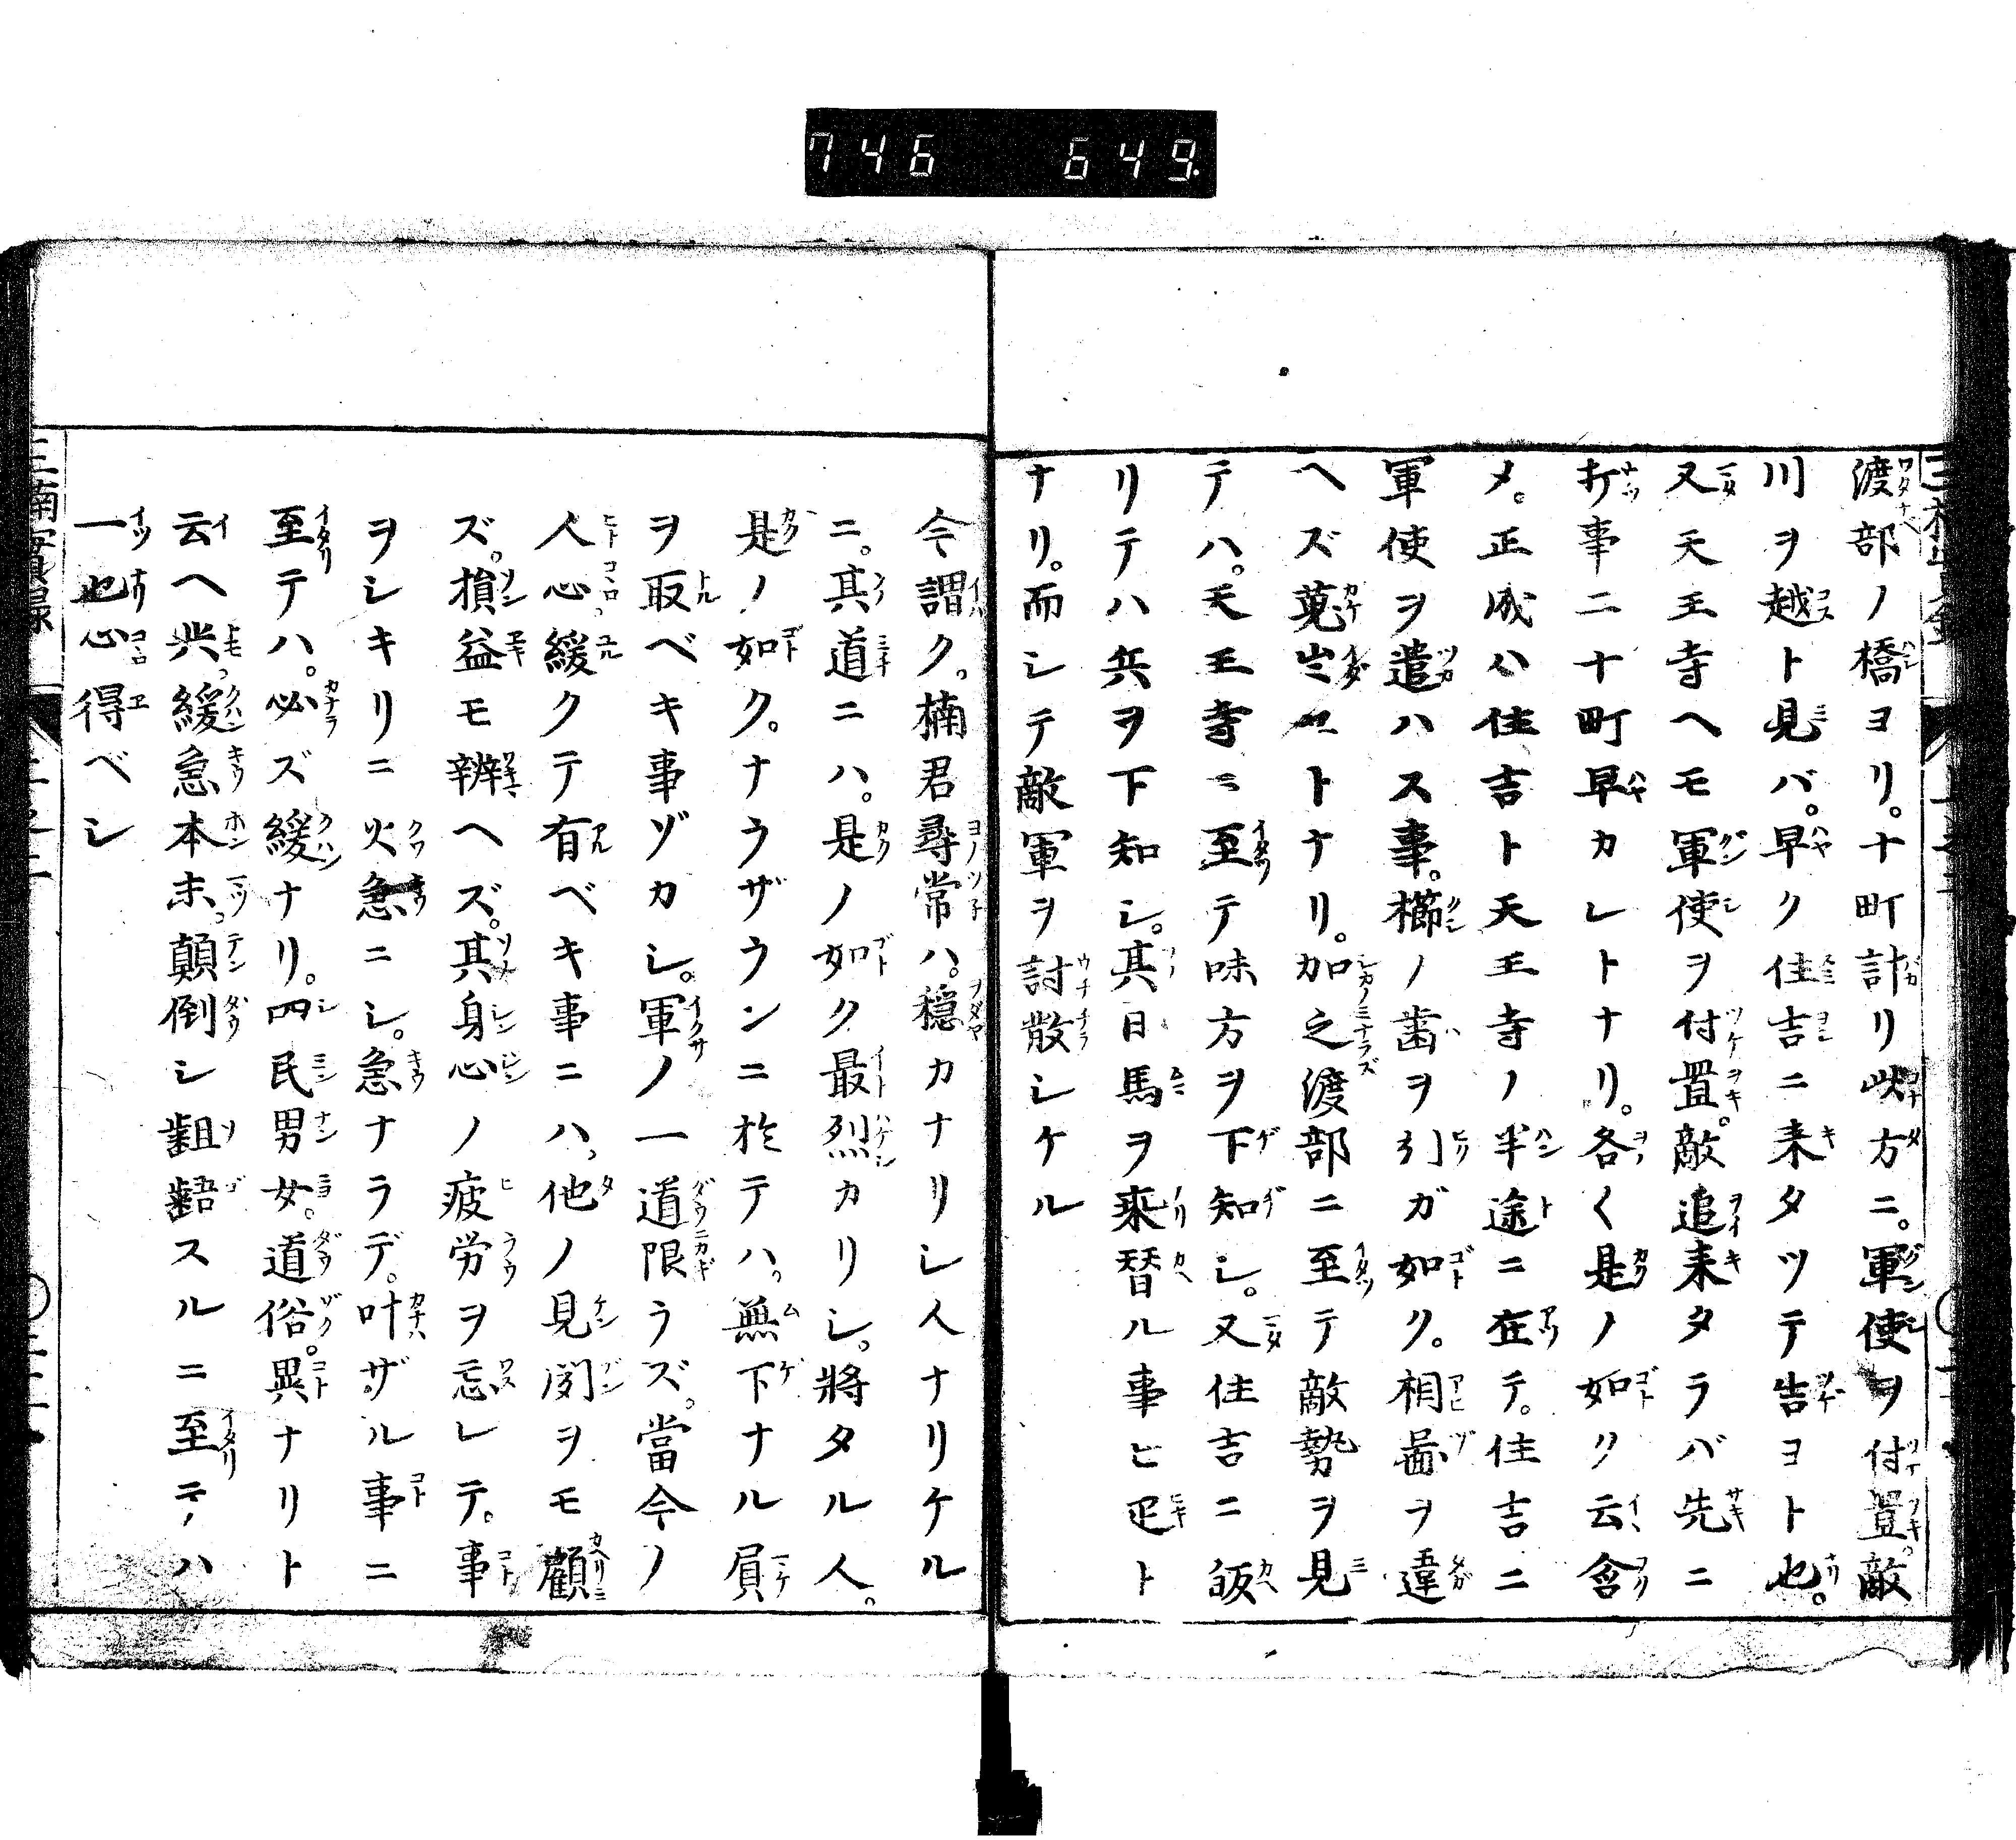 746 649.
渡部ノ橋ヨリ。十町計リ此方ニ。軍使ヲ付置。敵
川ヲ越ト見バ。早ク住吉ニ来タツテ告ヨト也。
又天王寺ヘモ軍使ヲ付置。敵追来タラバ先ニ
打事二十町早カレトナリ。各〱是ノ如ク云含
メ。正成ハ住吉ト天王寺ノ半途ニ在テ。住吉ニ
軍使ヲ遣ハス事。櫛ノ歯ヲ引ガ如ク。相圖ヲ違
ヘズ
トナリ。加之渡部ニ至テ敵勢ヲ見
テハ。天王寺ニ至テ味方ヲ下知シ。又住吉ニ皈
リテハ兵ヲ下知シ。其日馬ヲ乗替ル事ヒ疋ト
ナリ。而シテ敵軍ヲ討散シケル
今謂ク。楠君尋常ハ。穏カナリシ人ナリケル
ニ。其道ニハ。是ノ如ク最烈カリシ。將タル人。
是ノ如ク。ナウザウンニ於テハ。無下ナル屓
ヲ取ベキ事ゾカシ。軍ノ一道限ラズ。當今ノ
人心緩クテ有ベキ事ニハ。他ノ見聞ヲモ顧
ズ。損益モ辨ヘズ。其身心ノ疲労ヲ忘レテ。事
ヲシキリニ火急ニシ。急ナラデ。叶ザル事ニ
至テハ。必ズ緩ナリ。四民男女。道俗。異ナリト
云ヘ共。緩急本末。顛倒シ齟齬スルニ至テハ
一也心得ベシ